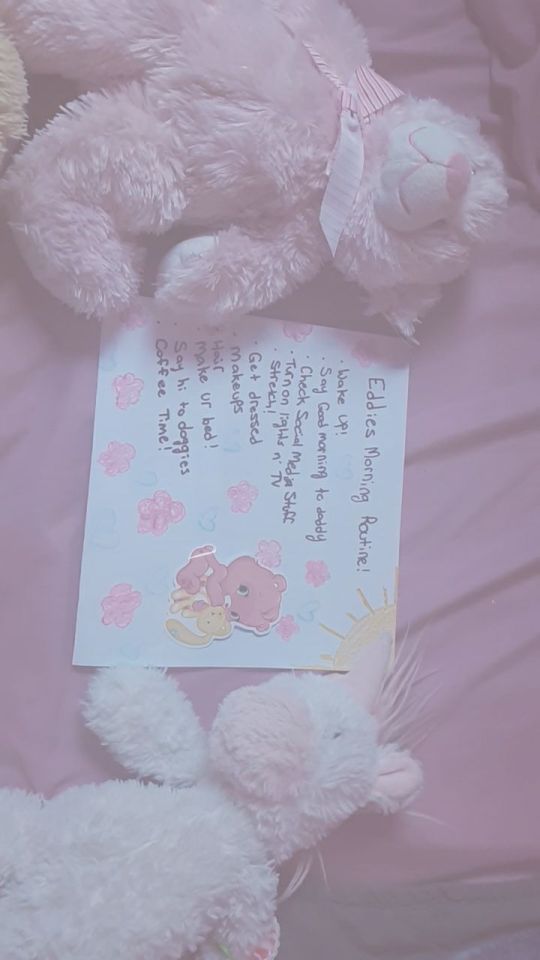 Eddies Morning Routine!
· Wake up!
· Say Good morning to daddy
· Check Social Media Stuff
· Turn on lights n' TV
· Stretch!
· Get dressed
· Makeups
· Hair
· Make ur bed!
· Say hi to doggies
· Coffee Time!